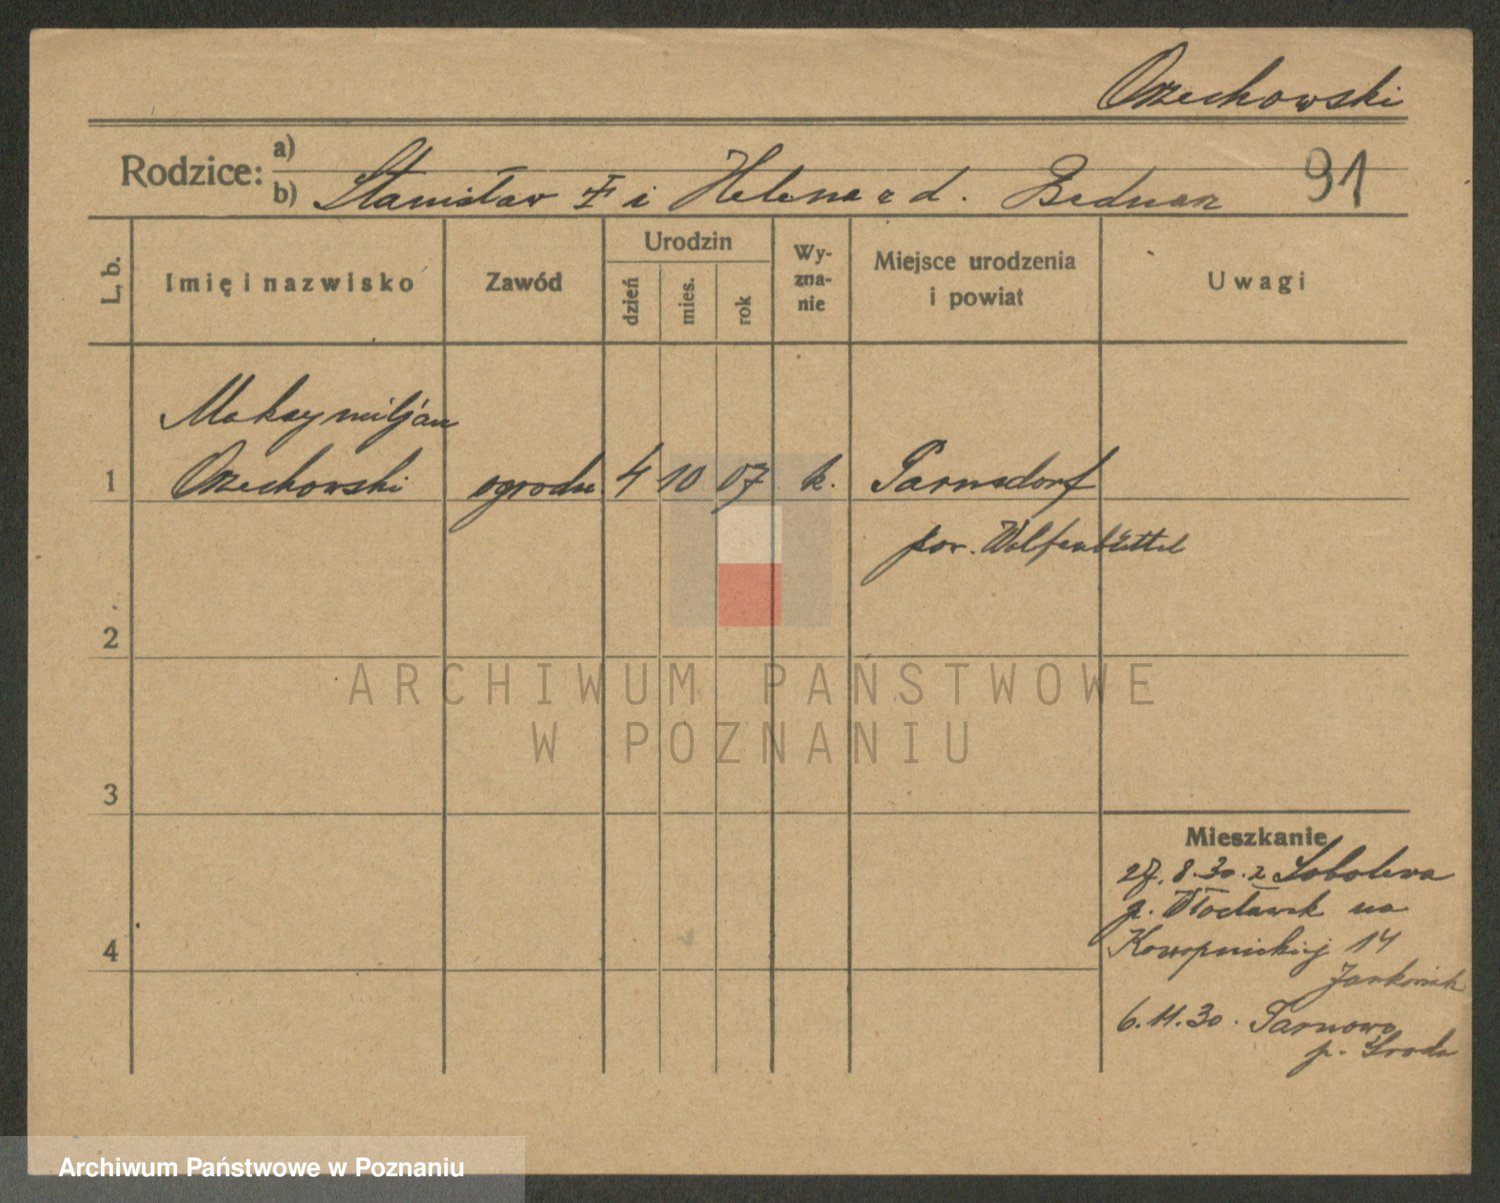 Orzechowski
Rodzice: a)
b) Stanisław i Helena z d. Bednarz
91
L. b.
Imię i nazwisko
Zawód
Urodzin
dzień
mies.
rok
Wy-
zna-
nie
Miejsce urodzenia
i powiat
Uwagi
Maksymiljan
1 Orzechowski ogrodn. 4 10 07 k. Parnsdorf
pow. Wolfenbüttel
2
3
4
Mieszkanie
27.8.30. z Sobolewa
p. Włocławek na
Konopnickiej 14
6.11.30. Tarnowo
p. Środa
ARCHIWUM PAŃSTWOWE
W POZNANIU
Archiwum Państwowe w Poznaniu